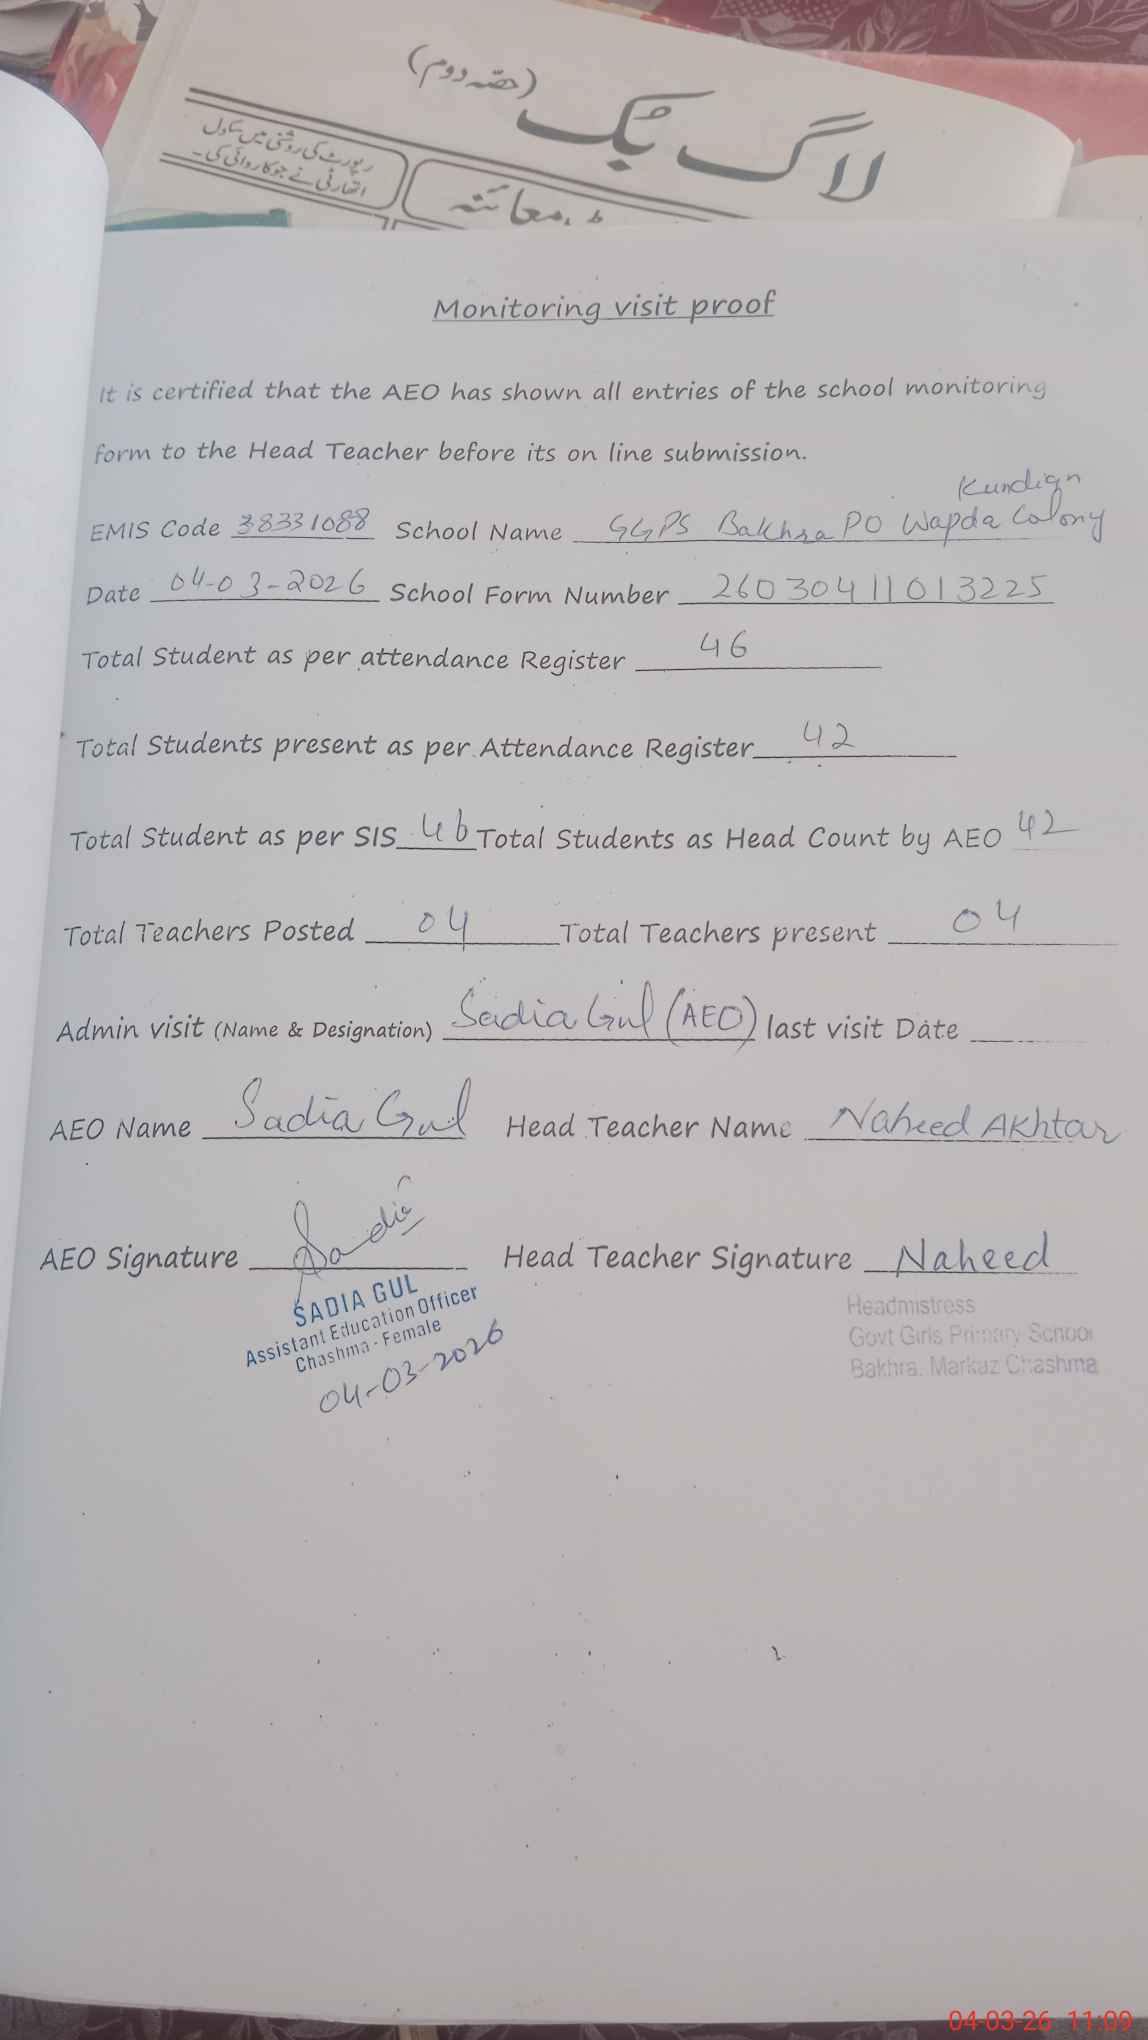 لاگ بک (حصّہ دوم)
رپورٹ کی روشنی میں سکول
اتھارٹی نے جو کاروائی کی۔
معائنہ
Monitoring visit proof
It is certified that the AEO has shown all entries of the school monitoring
form to the Head Teacher before its on line submission.
Kundian
EMIS Code 38331088 School Name GGPS Bakhra PO Wapda Colony
Date 04-03-2026 School Form Number 26030411013225
Total Student as per attendance Register 46
Total Students present as per Attendance Register 42
Total Student as per SIS 46 Total Students as Head Count by AEO 42
Total Teachers Posted 04 Total Teachers present 04
Admin visit (Name & Designation) Sadia Gul (AEO) last visit Date
AEO Name Sadia Gul Head Teacher Name Naheed Akhtar
AEO Signature Sadia Head Teacher Signature Naheed
SADIA GUL
Assistant Education Officer
Chashma - Female
04-03-2026
Headmistress
Govt Girls Primary School
Bakhra. Markaz Chashma
04-03-26 11:09